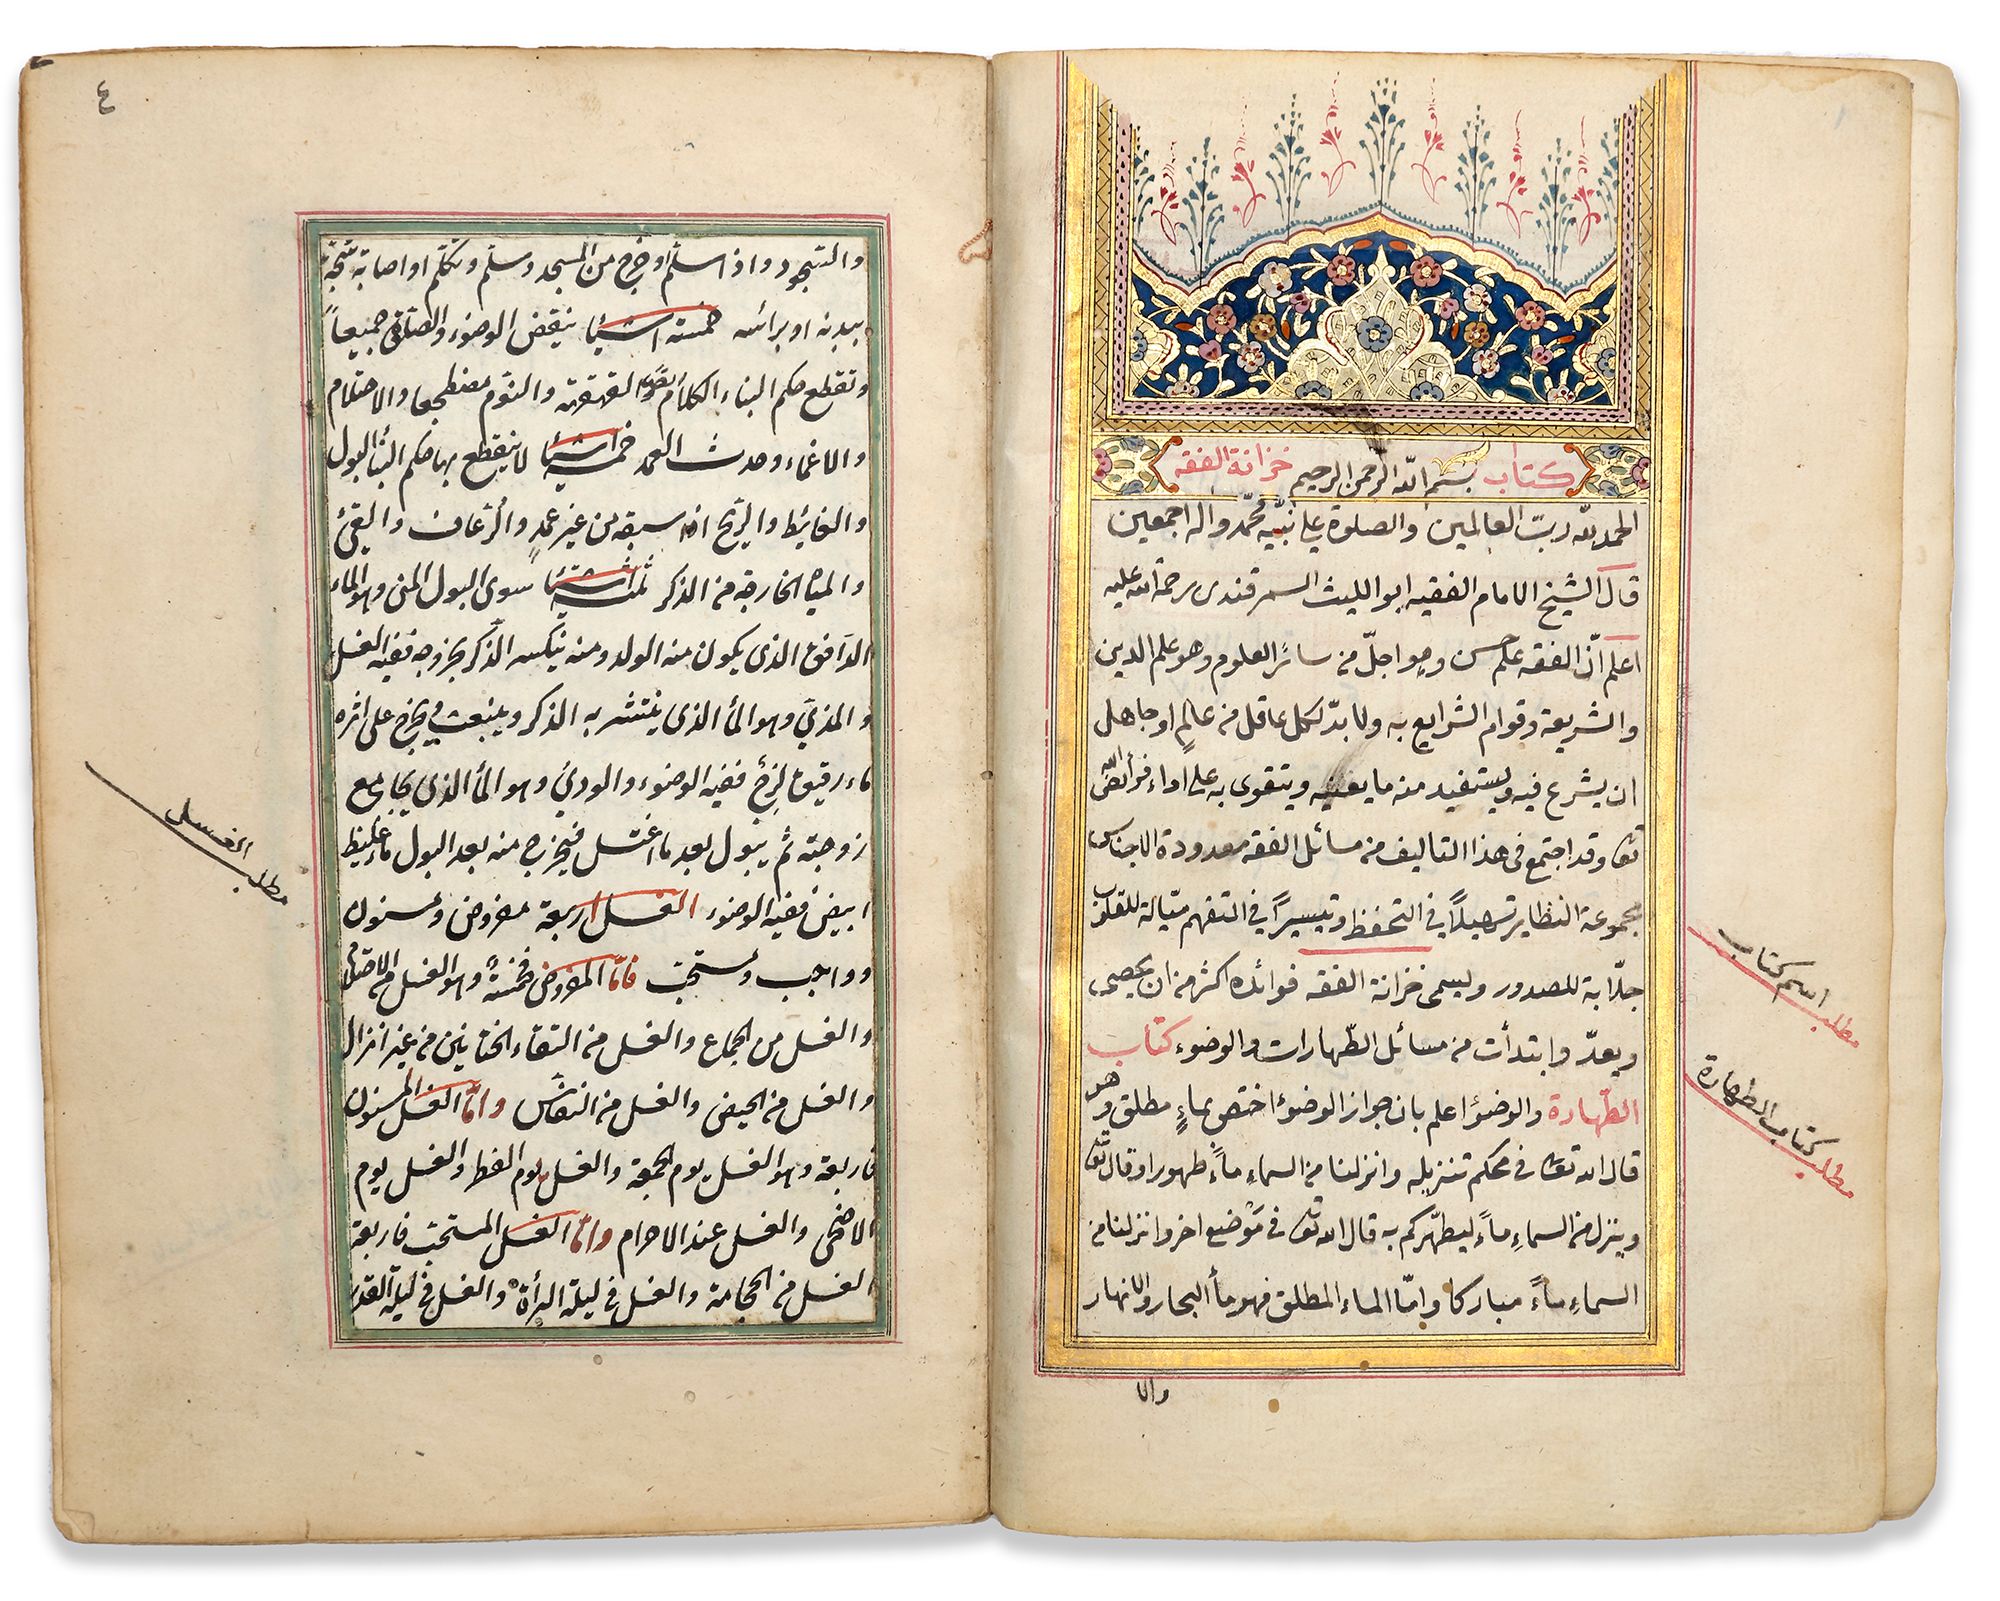 كتاب بسم الله الرحمن الرحيم خزانة الفقه
الحمد لله رب العالمين والصلوة على نبيه محمد واله اجمعين
قال الشيخ الامام الفقيه ابو الليث السمرقندى رحمة الله عليه
اعلم انّ الفقه علم حسن وهو اجلّ من سائر العلوم وهو علم الدين
والشريعة وقوام الشرايع به ولا بدّ لكل عاقل من عالمٍ او جاهل
ان يشرع فيه ويستفيد منه ما يعينه ويتقوى به على اداء فرائض الله
تعا وقد اجتمع فى هذا التاليف من مسائل الفقه معدودة الاجناس
مجموعة النظاير تسهيلاً في التحفظ وتيسيراً في التفهم ميّالة للقلوب
جلّابة للصدور ويسمى خزانة الفقه فوائده اكثر من ان يحصى
ويعدّ وابتدأت من مسائل الطّهارات والوضوء كتاب
الطّهارة والوضوء اعلم بان جواز الوضوء اختص بماءٍ مطلق وهو
قال الله تعا فى محكم تنزيله وانزلنا من السماء ماءً طهورا وقال تعا
وينزل من السماءِ ماءً ليطهّركم به قال الله تعا فى مَوْضع اخر وانزلنا من
السماءِ ماءً مباركا وامّا الماء المطلق فهو مأ البحار والانهار
والا
مطلب اسم كتاب
مطلب كتاب الطهارة
٤
والسّجود واذا سلّم او خرج من المسجد وسلّم وتكلّم او اصابة شجّة
ببدنه او برائسه خمسة اشيا ينقض الوضوء والصّلوة جميعاً
وتقطع حكم البناء الكلام والقهقهة والنوم مضطجعا والاحتلام
والاغماء وحدث العمد خمسة اشيا لا ينقطع بها حكم البنا البول
والغائط والريح اذا سبقه من غير عمدٍ والرّعاف والقئ
والمياه الخارجة من الذكر ثمنية اشيا سوى البول المنى وهو الماء
الدافق الذى يكون منه الولد ومنه ينكسر الذكر بخروجه ففيه الغسل
والمذىّ وهو المأ الذى ينتشر به الذكر وينبعث ويخرج على اثره
ماء رقيق لزج ففيه الوضوء والودىّ وهو المأ الذى يجامع
زوجته ثم يبول بعد ما اغتسل فيخرج منه بعد البول ماء غليظ
ابيض ففيه الوضوء الغسل اربعة مفروض ومسنون
وواجب ومستحب فامّا المفروض فخمسةٌ وهو الغسل من الاحتلام
والغسل من الجماع والغسل من التقاء الختانين من غير انزال
والغسل من الحيض والغسل من النفاس وامّا الغسل المسنون
فاربعة وهو الغسل يوم الجمعة والغسل يوم الفطر والغسل يوم
الاضحى والغسل عند الاحرام وامّا الغسل المستحب فاربعة
الغسل من الحجامة والغسل فى ليلة البرأة والغسل فى ليلة القدر
مطلب الغسل